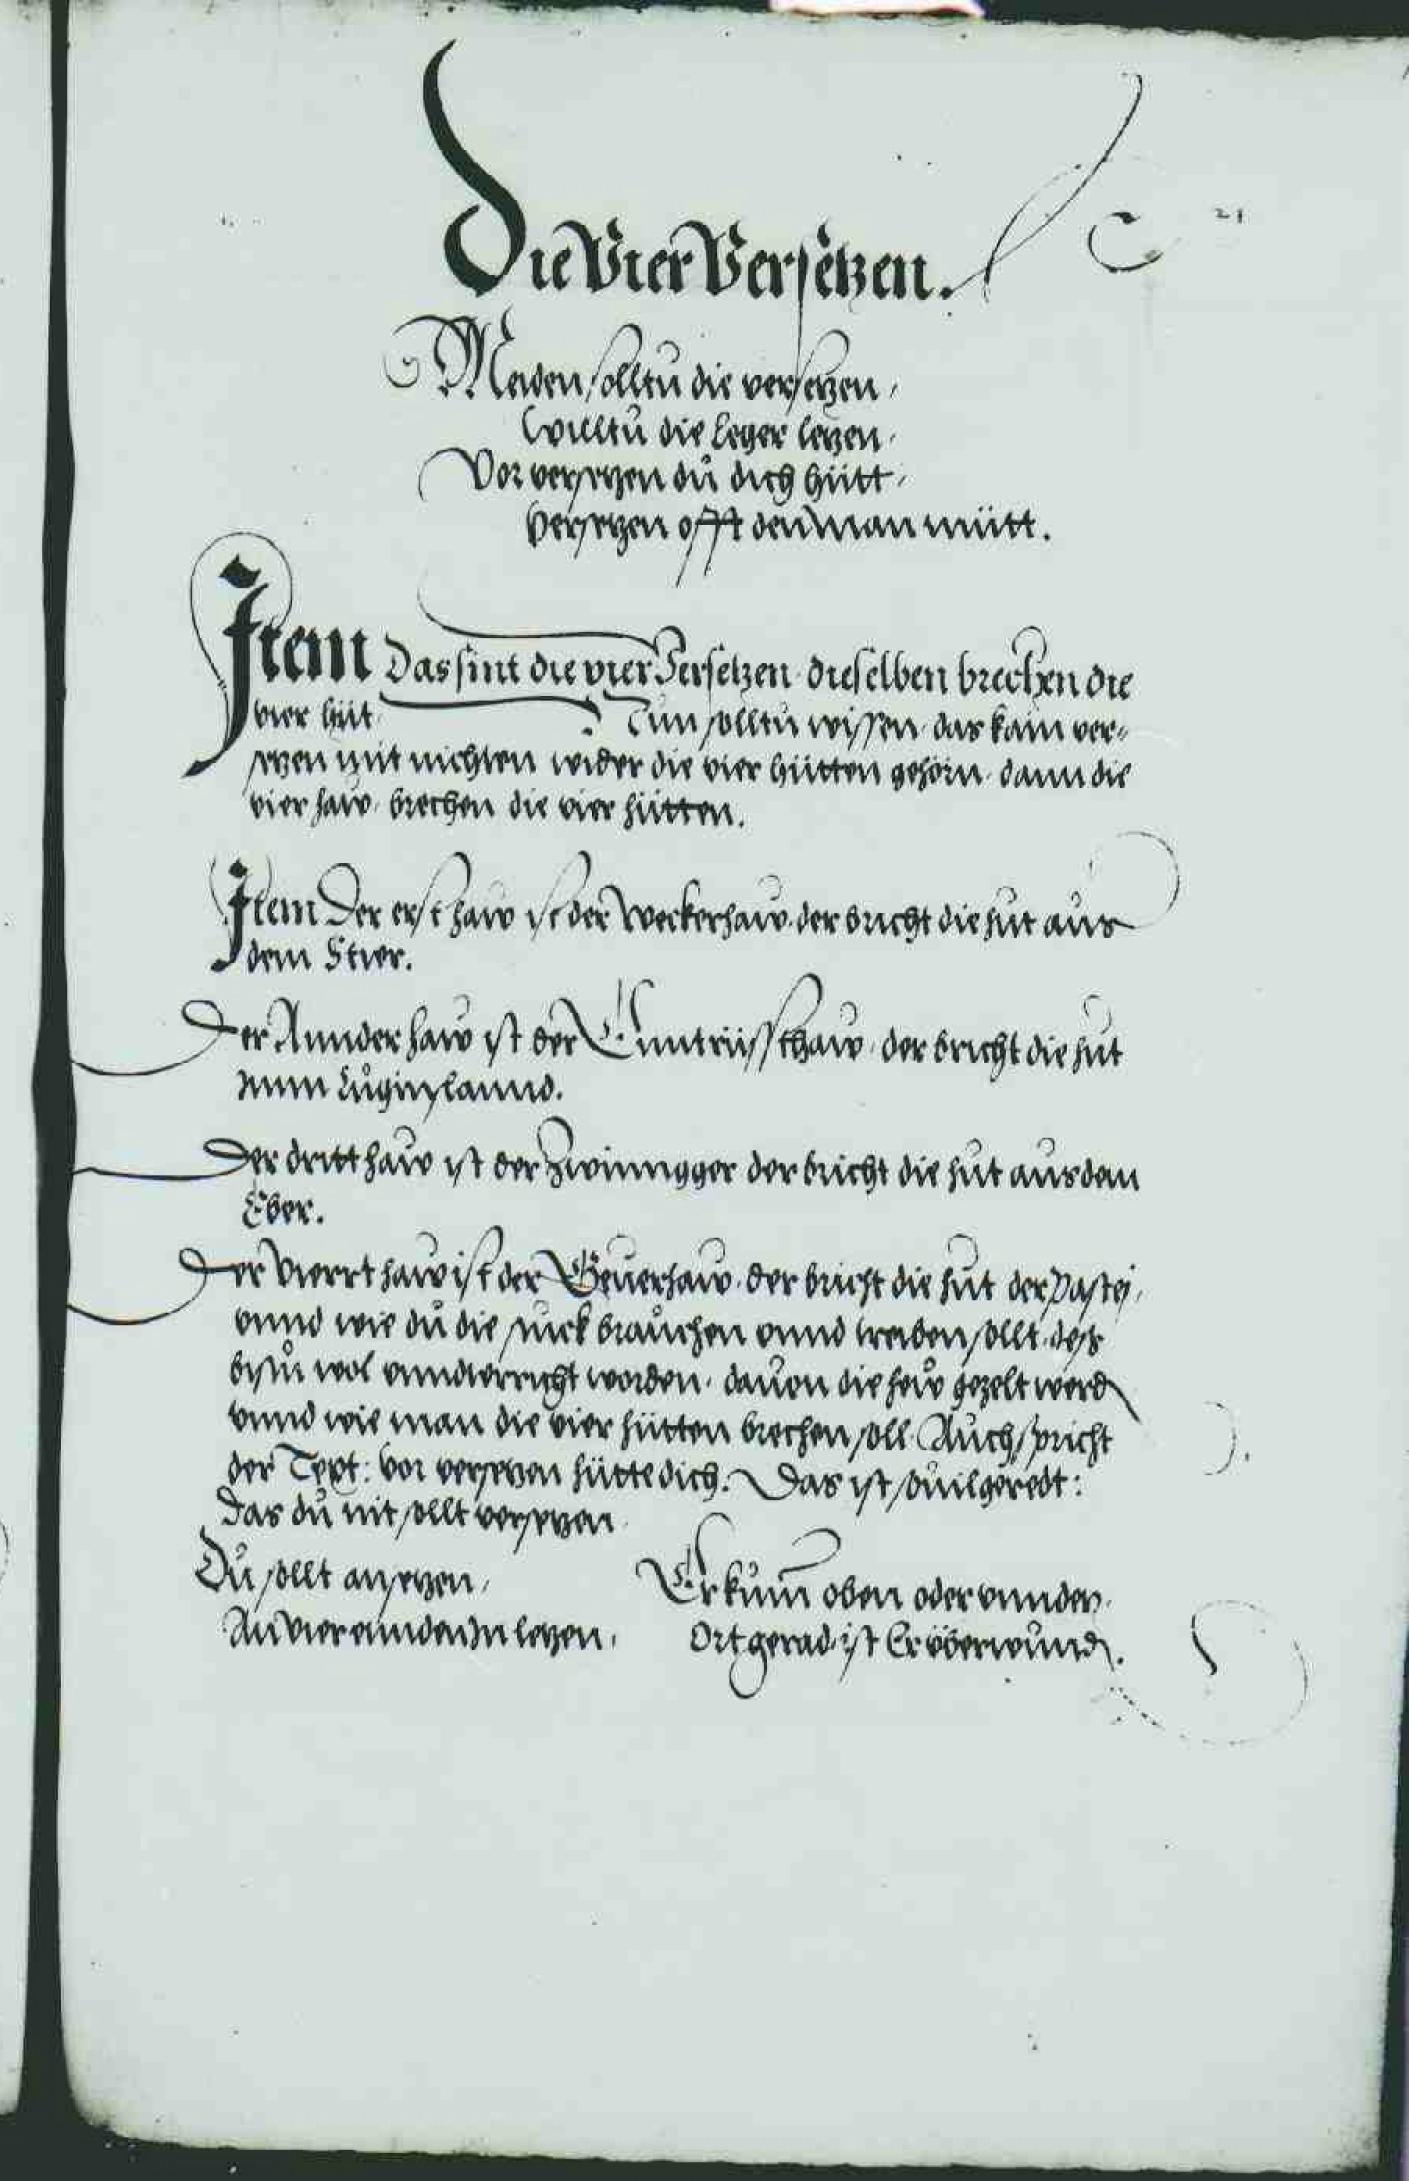 21
Die Vier Versetzen.
Meiden solltu die versetzen,
Willtu die leger letzen,
Vor versetzen dů dich hütt,
Versetzen offt den Man mütt.
Item Das sint die vier Versetzen dieselben brechen die
vier hüt. Nun solltu wissen das kain ver-
setzen mit nichten wider die vier hütten gehörn dann die
vier haw brechen die vier hütten.
Item Der erst haw ist der Weckerhaw der bricht die hut aus
dem Stier.
Der Annder haw ist der Enntrüsthaw der bricht die hut
zum Lůginslannd.
Der dritt haw ist der Zwinngger der bricht die hut aus dem
Eber.
Der Vierrt haw ist der Geuerhaw der bricht die hut der Pastej,
vnnd wie dů die stuck brauchen vnnd treiben sollt des
bistu wol vnnderricht worden dauon die hew gezelt werden
vnnd wie man die vier hütten brechen soll Auch spricht
der Text: Vor versetzen hütte dich. Das ist souil geredt:
Das dů nit sollt versetzen
Du sollt ansetzen,
An vier ennden In letzen,
Er kum oben oder vnnden,
Ort gerad ist Er überwunden.